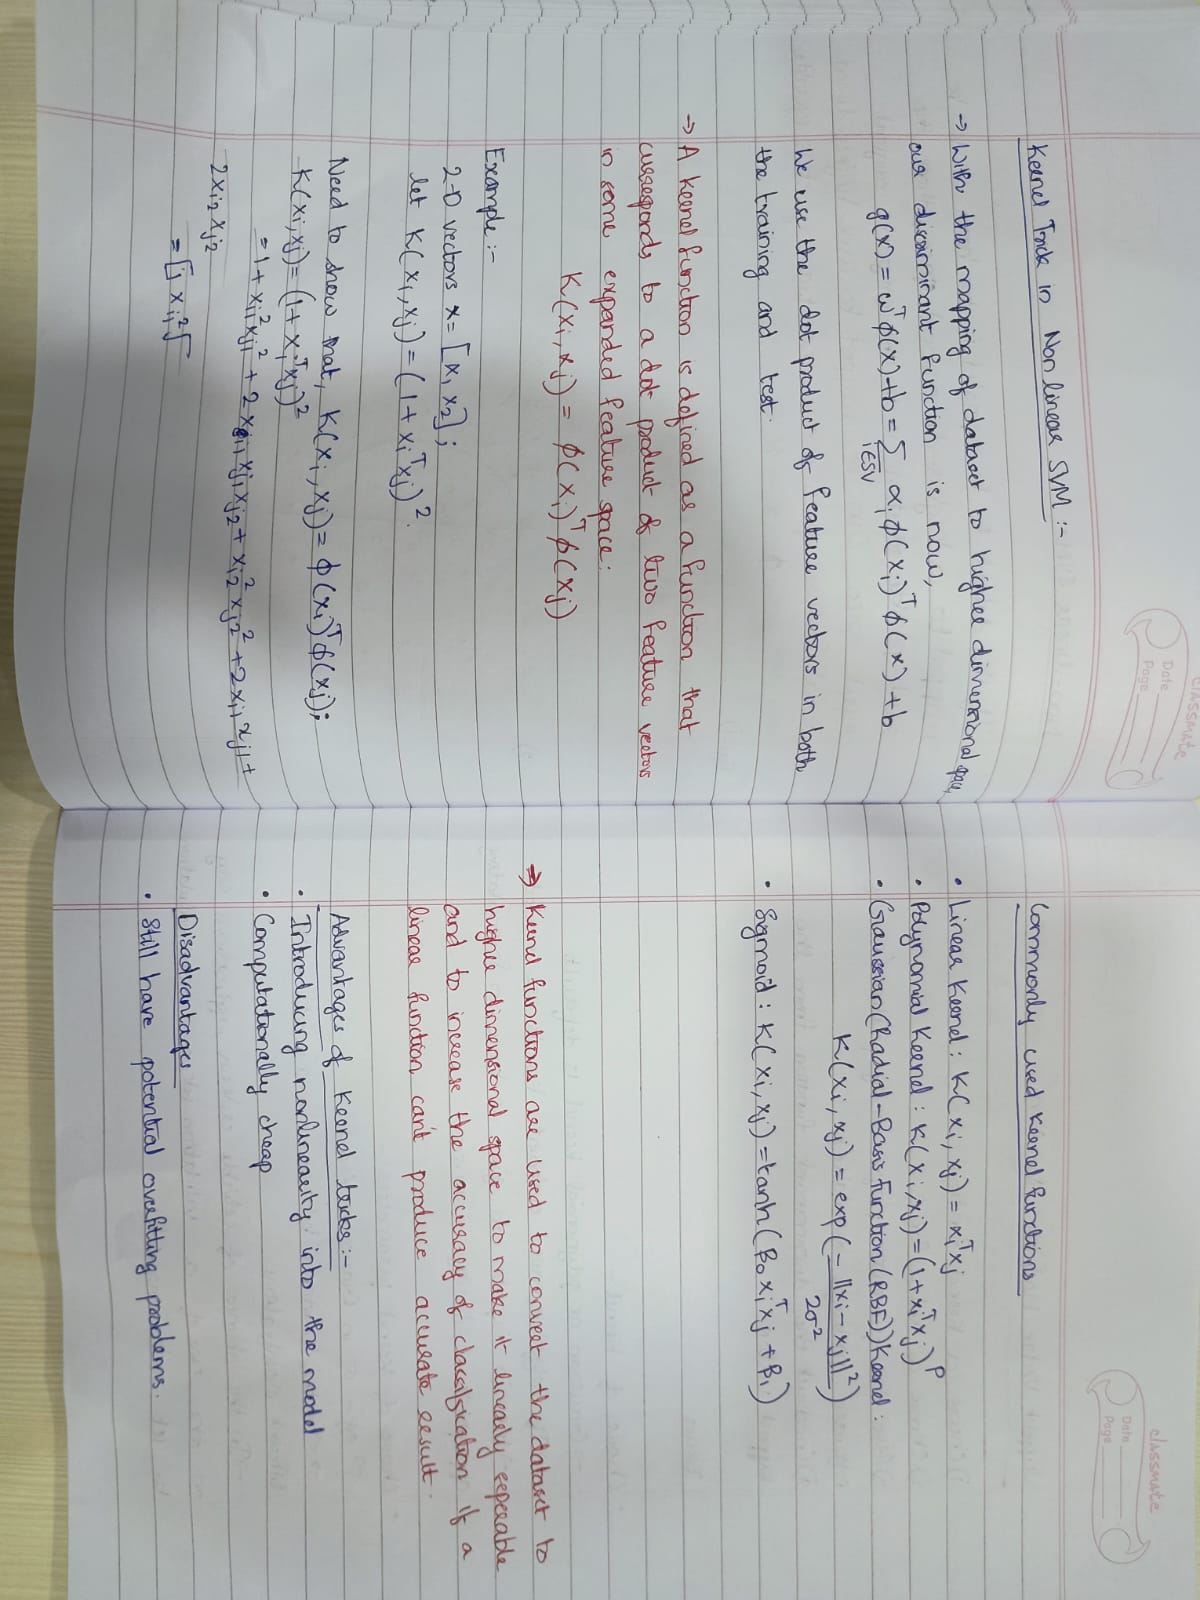 classmate
Date
Page
Kernel Trick in Non linear SVM :-
→ With the mapping of dataset to higher dimensional space,
our discriminant function is now,
g(x) = ωᵀϕ(x)+b = Σ αᵢ ϕ(xᵢ)ᵀϕ(x) + b
i∈SV
We use the dot product of feature vectors in both
the training and test.
→ A kernel function is defined as a function that
curresponds to a dot product of two feature vectors
in some expanded feature space:
K(xᵢ, xⱼ) = ϕ(xᵢ)ᵀϕ(xⱼ)
Example :-
2-D vectors x = [x₁ x₂];
let K(xᵢ, xⱼ) = (1 + xᵢᵀxⱼ)².
Need to show that, K(xᵢ, xⱼ) = ϕ(xᵢ)ᵀϕ(xⱼ);
K(xᵢ, xⱼ) = (1 + xᵢᵀxⱼ)²
= 1 + xᵢ₁²xⱼ₁² + 2 xᵢ₁ xⱼ₁ xⱼ₂ + xᵢ₂² xⱼ₂² + 2xᵢ₁ xⱼ₁ +
2xᵢ₂ xⱼ₂
= [1 xᵢ₁² √
classmate
Date
Page
Commonly used Kernel functions
• Linear Kernel : K(xᵢ, xⱼ) = xᵢᵀxⱼ
• Polynomial Kernel : K(xᵢ, xⱼ) = (1 + xᵢᵀxⱼ)ᵖ
• Gaussian (Radial-Basis Function (RBF)) Kernel :
K(xᵢ, xⱼ) = exp(-||xᵢ - xⱼ||²)
2σ²
• Sigmoid : K(xᵢ, xⱼ) = tanh(β₀ xᵢᵀxⱼ + β₁)
→ Kernel functions are used to convert the dataset to
higher dimensional space to make it linearly seperable
and to increase the accuracy of classification if a
linear function can't produce accurate result.
Advantages of Kernel tricks :-
• Introducing nonlinearity into the model
• Computationally cheap
Disadvantages
• Still have potential overfitting problems.